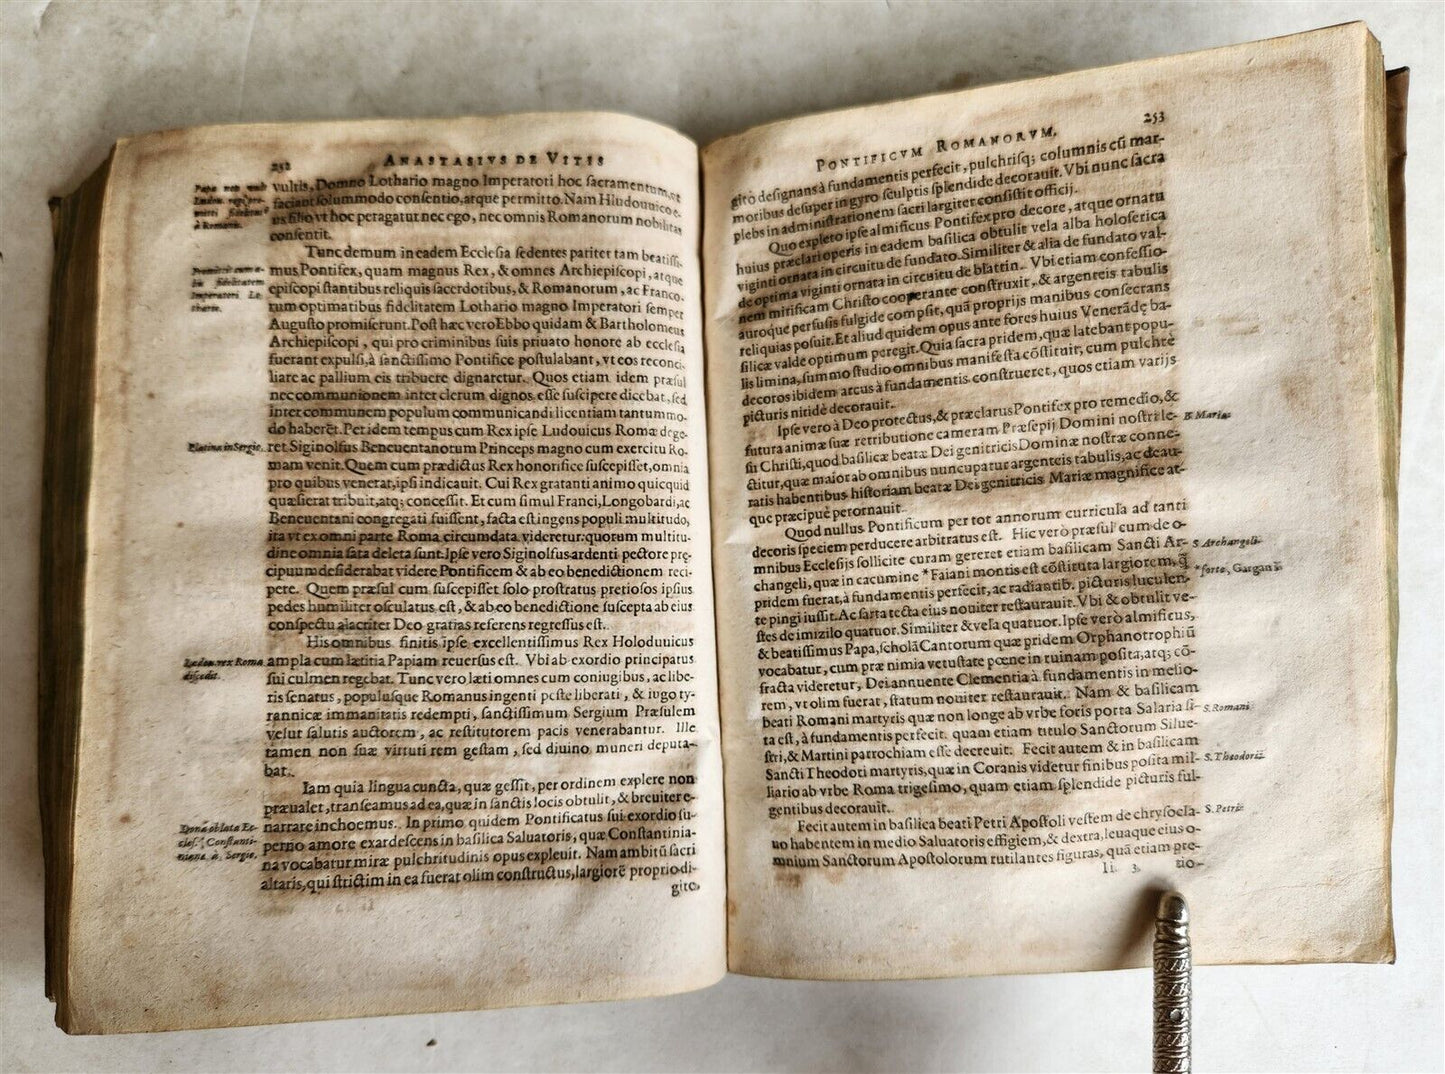 252 ANASTASIVS DE VITIS
vultis, Domno Lothario magno Imperatori hoc sacramentum, vt
faciant solummodo consentio, atque permitto. Nam Hludouuico e-
ius filio vt hoc peragatur nec ego, nec omnis Romanorum nobilitas
consentit.
Tunc demum in eadem Ecclesia sedentes pariter tam beatiss.
mus Pontifex, quam magnus Rex, & omnes Archiepiscopi, atque
episcopi stantibus reliquis sacerdotibus, & Romanorum, ac Franco-
rum optimatibus fidelitatem Lothario magno Imperatori semper
Augusto promiserunt. Post hæc vero Ebbo quidam & Bartholomeus
Archiepiscopi, qui pro criminibus suis priuato honore ab ecclesia
fuerant expulsi, à sanctissimo Pontifice postulabant, vt eos reconci-
liare ac pallium eis tribuere dignaretur. Quos etiam idem præsul
nec communionem inter clerum dignos esse suscipere dicebat, sed
inter communem populum communicandi licentiam tantummo-
do haberēt. Per idem tempus cum Rex ipse Ludouicus Romæ dege-
ret Siginolfus Beneuentanorum Princeps magno cum exercitu Ro-
mam venit. Quem cum prædictus Rex honorifice suscepisset, omnia
pro quibus venerat, ipsi indicauit. Cui Rex gratanti animo quicquid
quæsierat tribuit, atq; concessit. Et cum simul Franci, Longobardi, ac
Beneuentani congregati fuissent, facta est ingens populi multitudo,
ita vt ex omni parte Roma circumdata videretur: quorum multitu-
dine omnia sata deleta sunt. Ipse vero Siginolfus ardenti pectore prę-
cipuum desiderabat videre Pontificem & ab eo benedictionem reci-
pere. Quem præsul cum suscepisset solo prostratus pretiosos ipsius
pedes humiliter osculatus est, & ab eo benedictione suscepta ab eius
conspectu alacriter Deo gratias referens regressus est.
His omnibus finitis ipse excellentissimus Rex Holoduuicus
ampla cum lætitia Papiam reuersus est. Vbi ab exordio principatus
sui culmen regebat. Tunc vero læti omnes cum coniugibus, ac libe-
ris senatus, populusque Romanus ingenti peste liberati, & iugo ty-
rannicæ immanitatis redempti, sanctissimum Sergium Præsulem
velut salutis auctorem, ac restitutorem pacis venerabantur. Ille
tamen non suæ virtuti rem gestam, sed diuino muneri deputa-
bat.
Iam quia lingua cuncta, quæ gessit, per ordinem explere non
præualet, transeamus ad ea, quæ in sanctis locis obtulit, & breuiter e-
narrare inchoemus. In primo quidem Pontificatus sui exordio su-
perno amore exardescens in basilica Saluatoris, quæ Constantinia-
na vocabatur miræ pulchritudinis opus expleuit. Nam ambitū sacri
altaris, qui strictim in ea fuerat olim constructus, largiorē proprio di-
gito
Platina in Sergio.
Ludou. rex Roma
discedit.
Dona oblata Ec-
cles. Constanti-
niana à Sergio.
PONTIFICVM ROMANORVM. 253
gito designans à fundamentis perfecit, pulchrisq; columnis cū mar-
moribus desuper in gyro sculptis splendide decorauit. Vbi nunc sacra
plebs in administrationem sacri largiter consistit officij.
Quo expleto ipse almificus Pontifex pro decore, atque ornatu
huius præclari operis in eadem basilica obtulit vela alba holoserica
viginti ornata in circuitu de fundato. Similiter & alia de fundato val-
de optima viginti ornata in circuitu de blattin. Vbi etiam confessio-
nem mirificam Christo cooperante construxit, & argenteis tabulis
auroque perfusis fulgide compsit, quā proprijs manibus consecrans
reliquias posuit. Et aliud quidem opus ante fores huius Venerādę ba-
silicæ valde optimum peregit. Quia sacra pridem, quæ latebant popu-
lis limina, summo studio omnibus manifesta cōstituit, cum pulchrè
decoros ibidem arcus à fundamentis construeret, quos etiam varijs
picturis nitidè decorauit.
Ipse verò à Deo protectus, & præclarus Pontifex pro remedio, &
futura animæ suæ retributione cameram Præsepij Domini nostri Ie-
su Christi, quod basilicæ beatæ Dei genitricis Dominæ nostræ conne-
ctitur, quæ maior ab omnibus nuncupatur argenteis tabulis, ac deau-
ratis habentibus historiam beatæ Dei genitricis Mariæ magnifice at-
que præcipuè perornauit.
Quod nullus Pontificum per tot annorum curricula ad tanti
decoris speciem perducere arbitratus est. Hic verò præsul cum de o-
mnibus Ecclesijs sollicite curam gereret etiam basilicam Sancti Ar-
changeli, quæ in cacumine *Faiani montis est cōstituta largiorem, ꝗ̃
pridem fuerat, à fundamentis perfecit, ac radiantib. picturis luculen-
te pingi iussit. Ac sarta tecta eius nouiter restaurauit. Vbi & obtulit ve-
stes de imizilo quatuor. Similiter & vela quatuor. Ipse verò almificus,
& beatissimus Papa, scholā Cantorum quæ pridem Orphanotrophiū
vocabatur, cum præ nimia vetustate pœne in ruinam posita, atq; cō-
fracta videretur, Dei annuente Clementia à fundamentis in melio-
rem, vt olim fuerat, statum nouiter restaurauit. Nam & basilicam
beati Romani martyris quæ non longe ab vrbe foris porta Salaria si-
ta est, à fundamentis perfecit. quam etiam titulo Sanctorum Silue-
stri, & Martini parrochiam esse decreuit. Fecit autem & in basilicam
Sancti Theodoti martyris, quæ in Coranis videtur finibus posita mil-
liario ab vrbe Roma trigesimo, quam etiam splendide picturis ful-
gentibus decorauit.
Fecit autem in basilica beati Petri Apostoli vestem de chrysocla-
uo habentem in medio Saluatoris effigiem, & dextra, leuaque eius o-
mnium Sanctorum Apostolorum rutilantes figuras, quā etiam pre-
Ii 3 tio-
B. Maria.
S. Archangeli.
*forte, Gargani.
S. Romani
S. Theodori.
S. Petri.